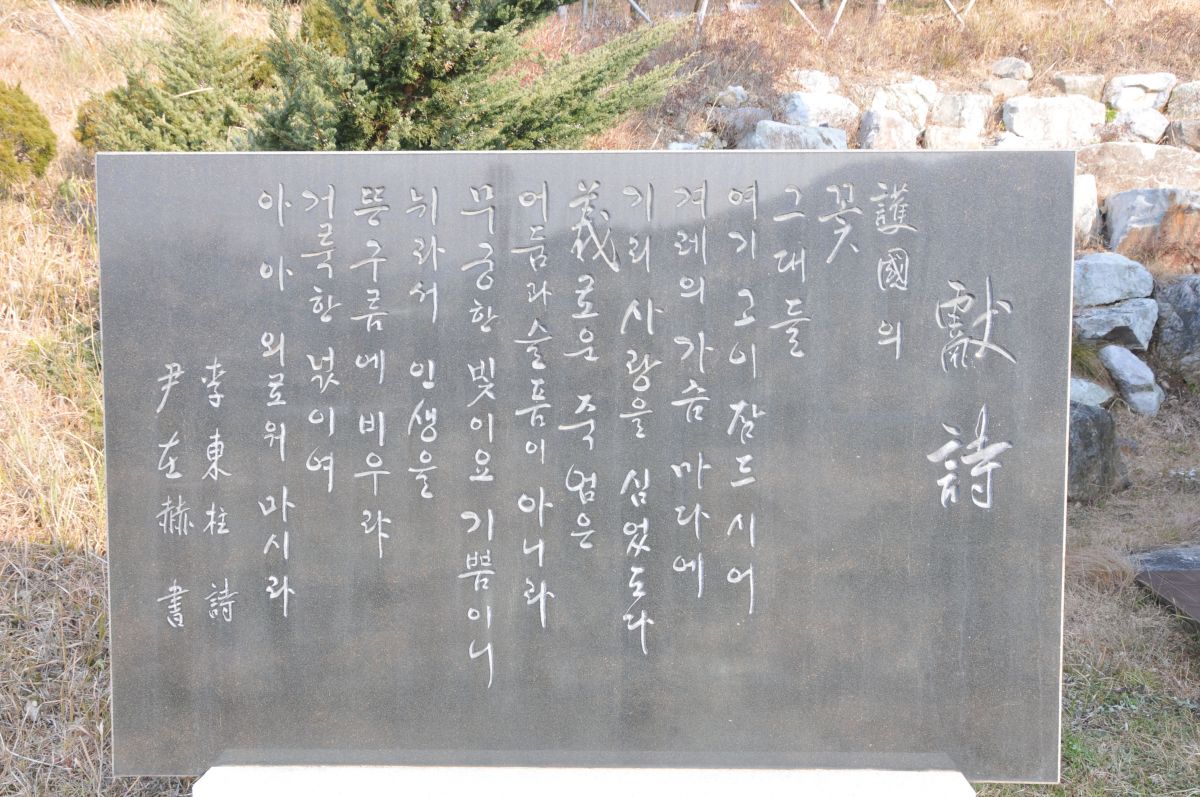 獻詩
護國의
꽃
그대들
여기 고이 잠드시어
겨레의 가슴 마다에
기리 사랑을 심었도다
義로운 죽엄은
어둠과 슬픔이 아니라
무궁한 빛이요 기쁨이니
뉘라서 인생을
뜽구름에 비우랴
거룩한 넋이여
아 아 외로워 마시라
李東柱 詩
尹在赫 書